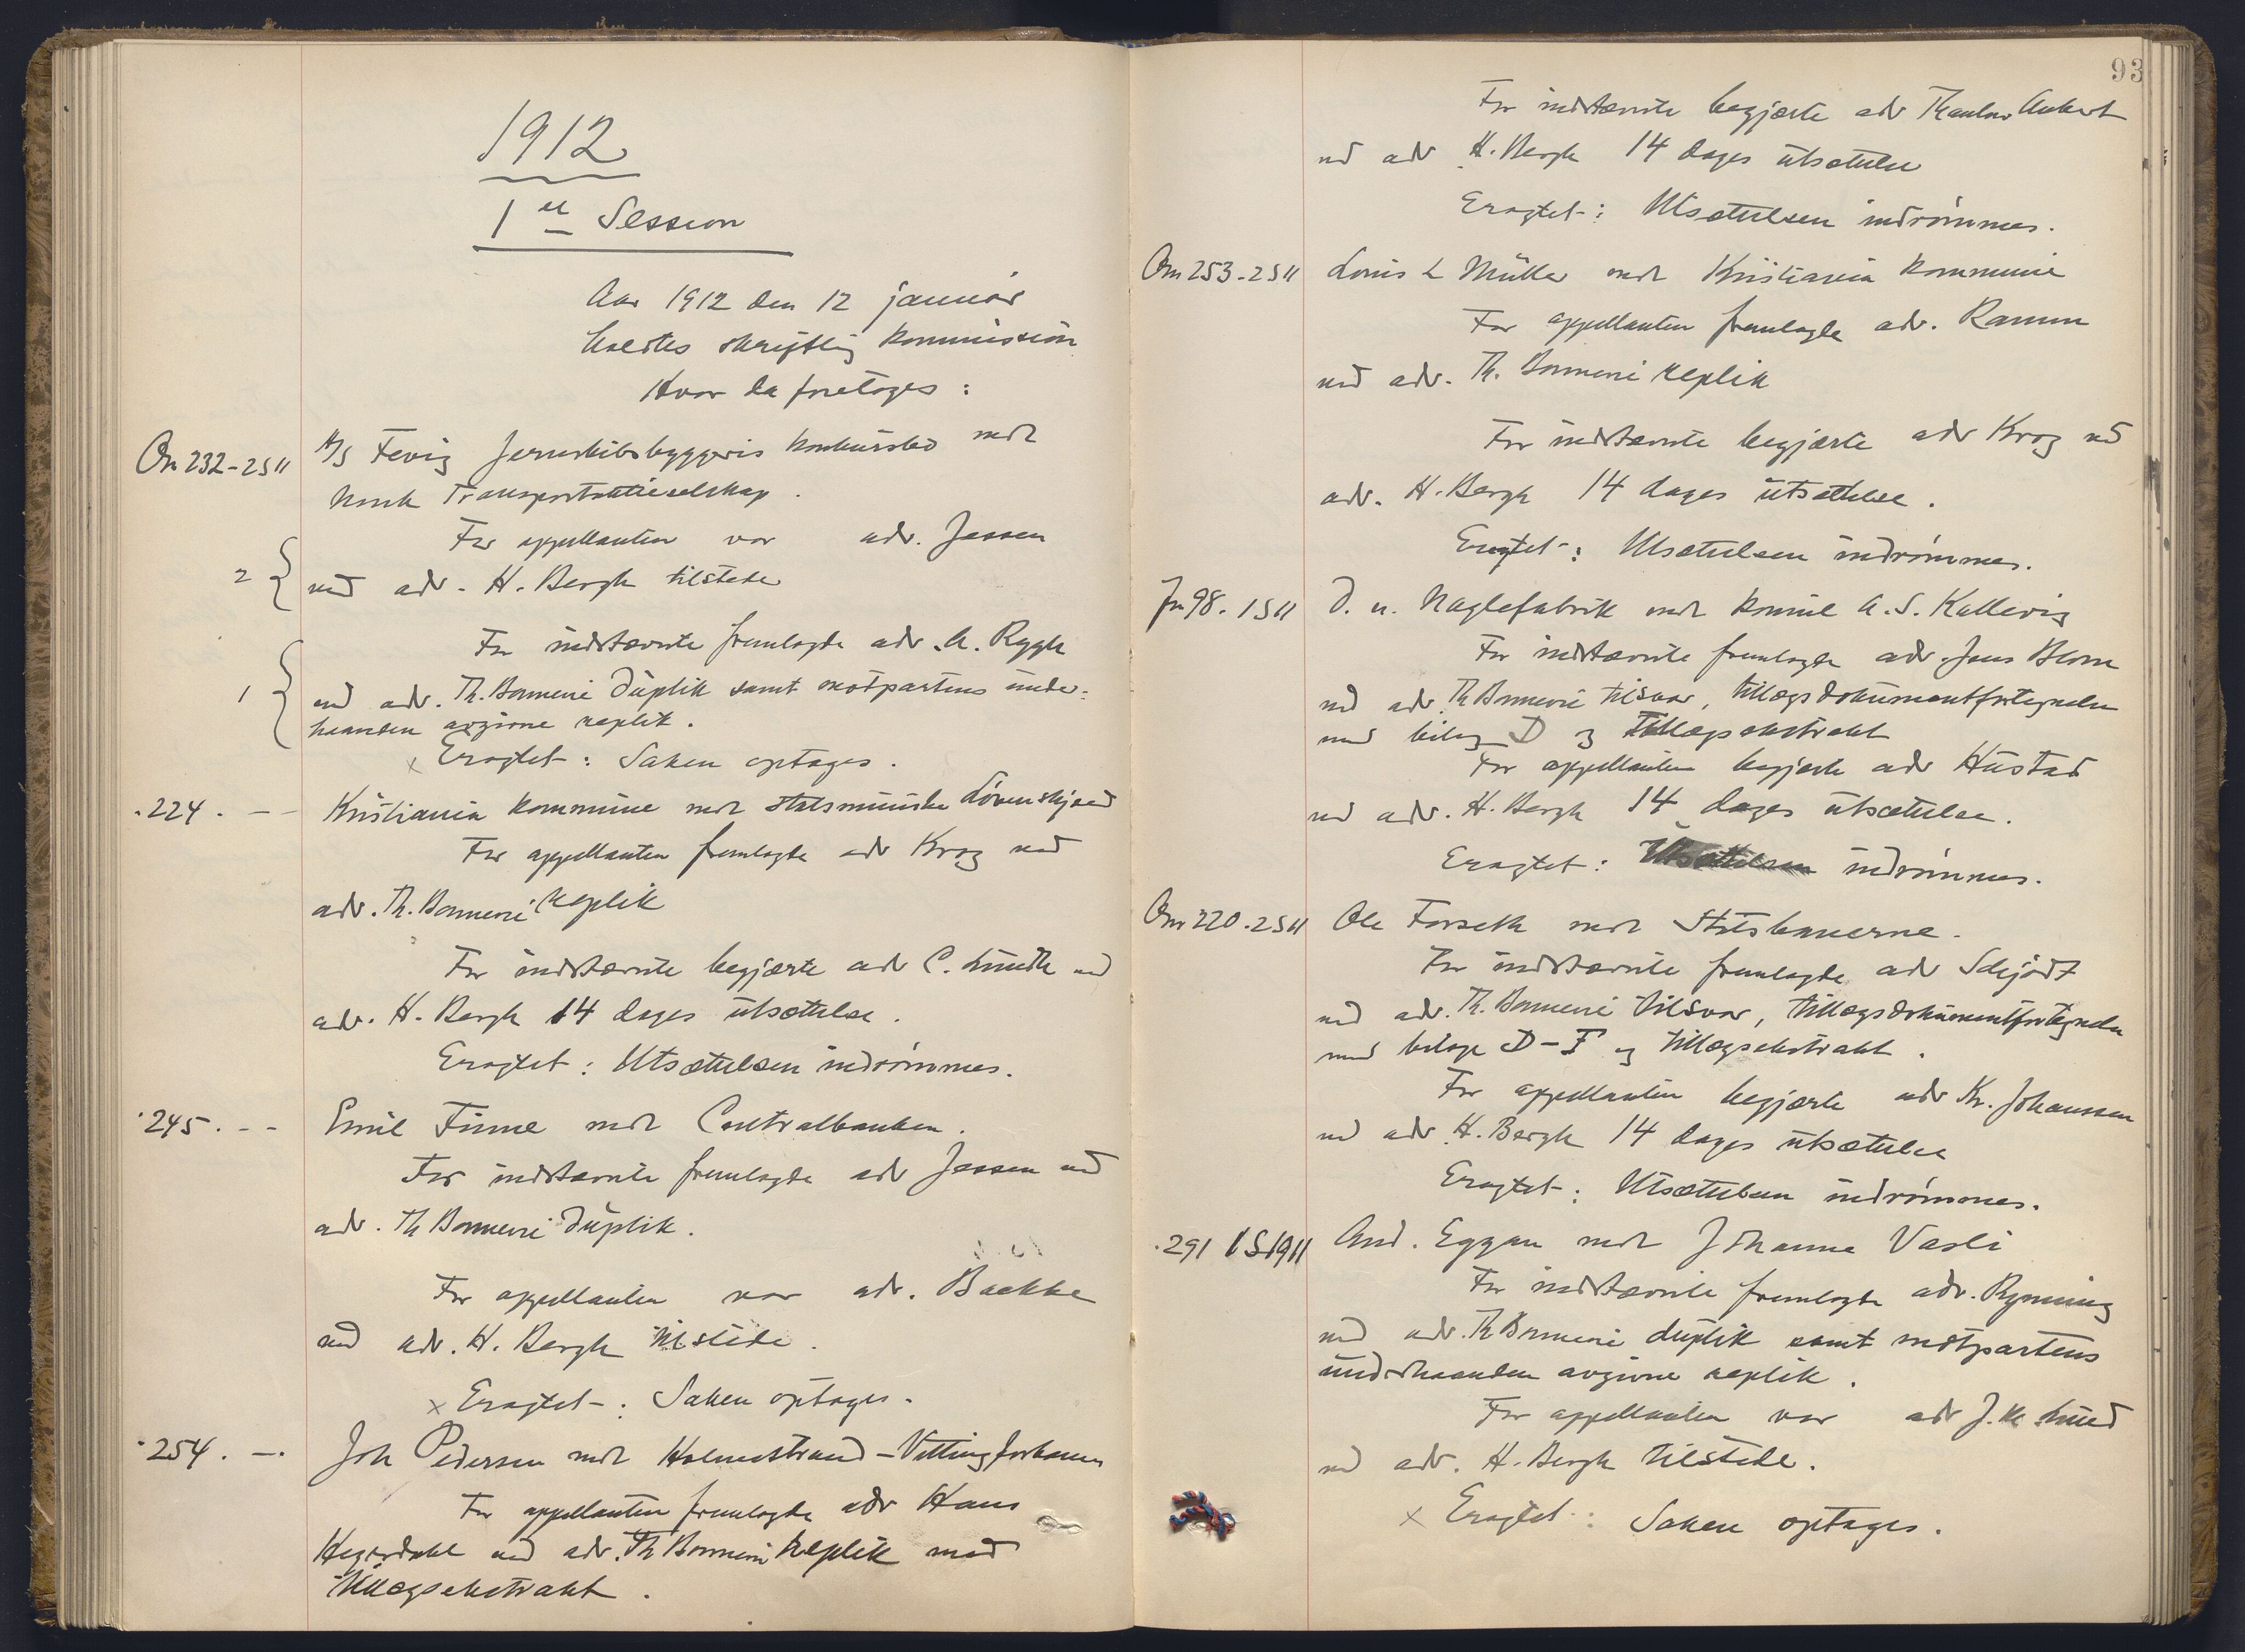 1912
1ste Session
Aar 1912 den 12 januar
holdtes skriftlig kommission
Hvor da foretoges:
On 232-2S11 A/S Fevig Jernskibsbyggeris konkursbo mot
Norsk Transportaktieselskap.
For appellanten var adv. Jessen
2 { ved adv. H. Bergh tilstede
For indstævnte fremlagde adv. A. Rygh
1 { ved adv. Th. Bonnevi duplik samt motpartens under-
haanden avgivne replik.
x Eragtet: Saken optages.
·224. — Kristiania kommune mot statsminister Løvenskjold
For appellanten fremlagde adv Krog ved
adv. Th. Bonnevi replik
For indstævnte begjærte adv C. Lundh ved
adv. H. Bergh 14 dages utsættelse.
Eragtet: Utsættelsen indrømmes.
·245. - - Emil Finne mot Centralbanken.
For indstævnte fremlagde adv Jessen ved
adv. Th Bonnevi duplik.
For appellanten var adv. Backke
ved adv. H. Bergh tilstede.
x Eragtet: Saken optages.
·254. —. Joh Pedersen mot Holmestrand-Vittingfosbanen
For appellanten fremlagde adv Hans
ved adv. Th Bonnevi replik med
tillægsekstrakt.
93
For indstævnte begjærte adv Aubert
ved adv H. Bergh 14 dages utsættelse
Eragtet: Utsættelsen indrømmes.
On 253-2S11 Louis L Müller mot Kristiania kommune
For appellanten fremlagde adv. Ramm
ved adv. Th. Bonnevi replik
For indstævnte begjærte adv Krog ved
adv. H. Bergh 14 dages utsættelse.
Eragtet: Utsættelsen indrømmes.
Jn 98. 1S11 D. n. Naglefabrik mot konsul A. S. Kallevig
For indstævnte fremlagde adv. Jens Blom
ved adv Th Bonnevi tilsvar, tillægsdokumentfortegnelse
med bilag D og tillægsekstrakt
For appellanten begjærte adv Hustad
ved adv. H. Bergh 14 dages utsættelse.
Eragtet: Utsættelsen indrømmes.
On 220.2S11 Ole Forseth mot Statsbanerne.
For indstævnte fremlagde adv Schjødt
ved adv. Th. Bonnevi tilsvar, tillægsdokumentfortegnelse
med bilage D-F og tillægsekstrakt.
For appellanten begjærte adv Kr. Johanssen
ved adv. H. Bergh 14 dages utsættelse
Eragtet: Utsættelsen indrømmes.
·291 1S1911 And. Eggan mot Johanna Vasli
For indstævnte fremlagde adv. Rynning
ved adv. Th Bonnevi duplik samt motpartens
underhaanden avgivne replik.
For appellanten var adv J. M. Lund
ved adv. H. Bergh tilstede.
x Eragtet: Saken optages.